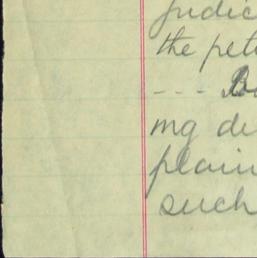 judic
the pet
--- B
mg de
plain
such